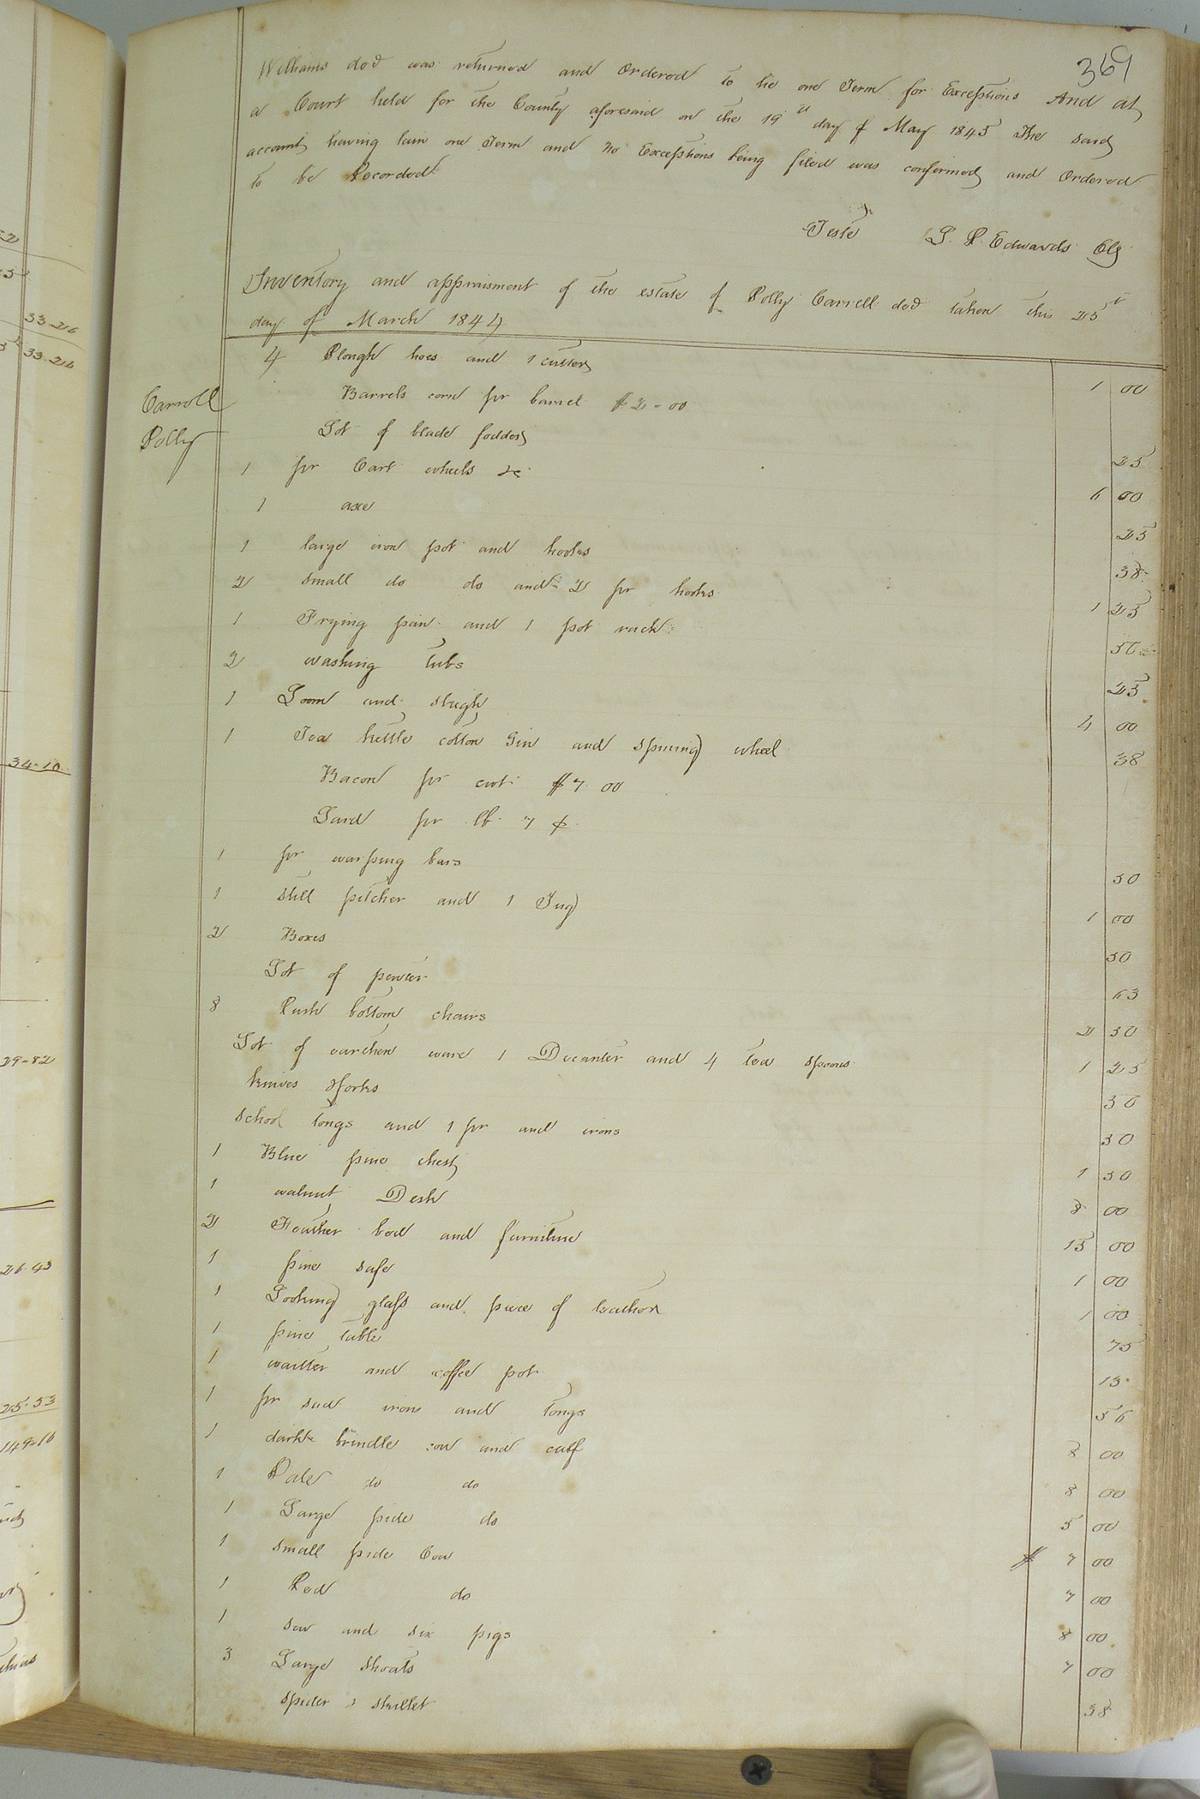 369
Williams decd was returned and Ordered to lie one Term for Exceptions And at
a Court held for the County aforesaid on the 19th day of May 1845 The said
account having lain one Term and no Exceptions being filed was confirmed and Ordered
to be Recorded
Teste Edwards Clk
Inventory and appraisment of the estate of Polly Carrell decd taken this 25th
day of March 1844
Carroll
Polly
4 Plough hoes and 1 cutter 1 00
Barrels corn pr barrel $2-00
Lot of blade fodder 25
1 pr Cart wheels &c 6 00
1 axe 25
1 large iron pot and hooks 38
2 small do do and 2 pr hooks 1 25
1 Frying pan and 1 pot rack 50
2 washing tubs 25
1 Loom and sleigh 4 00
1 Tea kettle cotton Gin and spining wheel 38
Bacon pr cwt $7 00
Lard pr lb 7 ¢
1 pr warping bars 50
1 still pitcher and 1 Jug 1 00
2 Boxes 50
Lot of pewter 63
8 Rush bottom chairs 2 50
Lot of earthen ware 1 Decanter and 4 tea spoons 1 25
knives & forks 50
tongs and 1 pr and irons 50
1 Blue pine chest 1 50
1 walnut Desk 8 00
2 Feather bed and furniture 15 00
1 pine safe 1 00
1 Looking glass and piece of leather 1 00
1 pine table 75
1 waiter and coffee pot 15
1 pr sad irons and tongs 56
1 darke brindle cow and calf 8 00
1 Pale do do 8 00
1 Large pide do 5 00
1 small pide Cow $ 7 00
1 Red do 7 00
1 sow and six pigs 8 00
3 Large shoats 7 00
spider & skillet 38
33-216
33-216
34-10
39-82
26-43
25-53
149-10